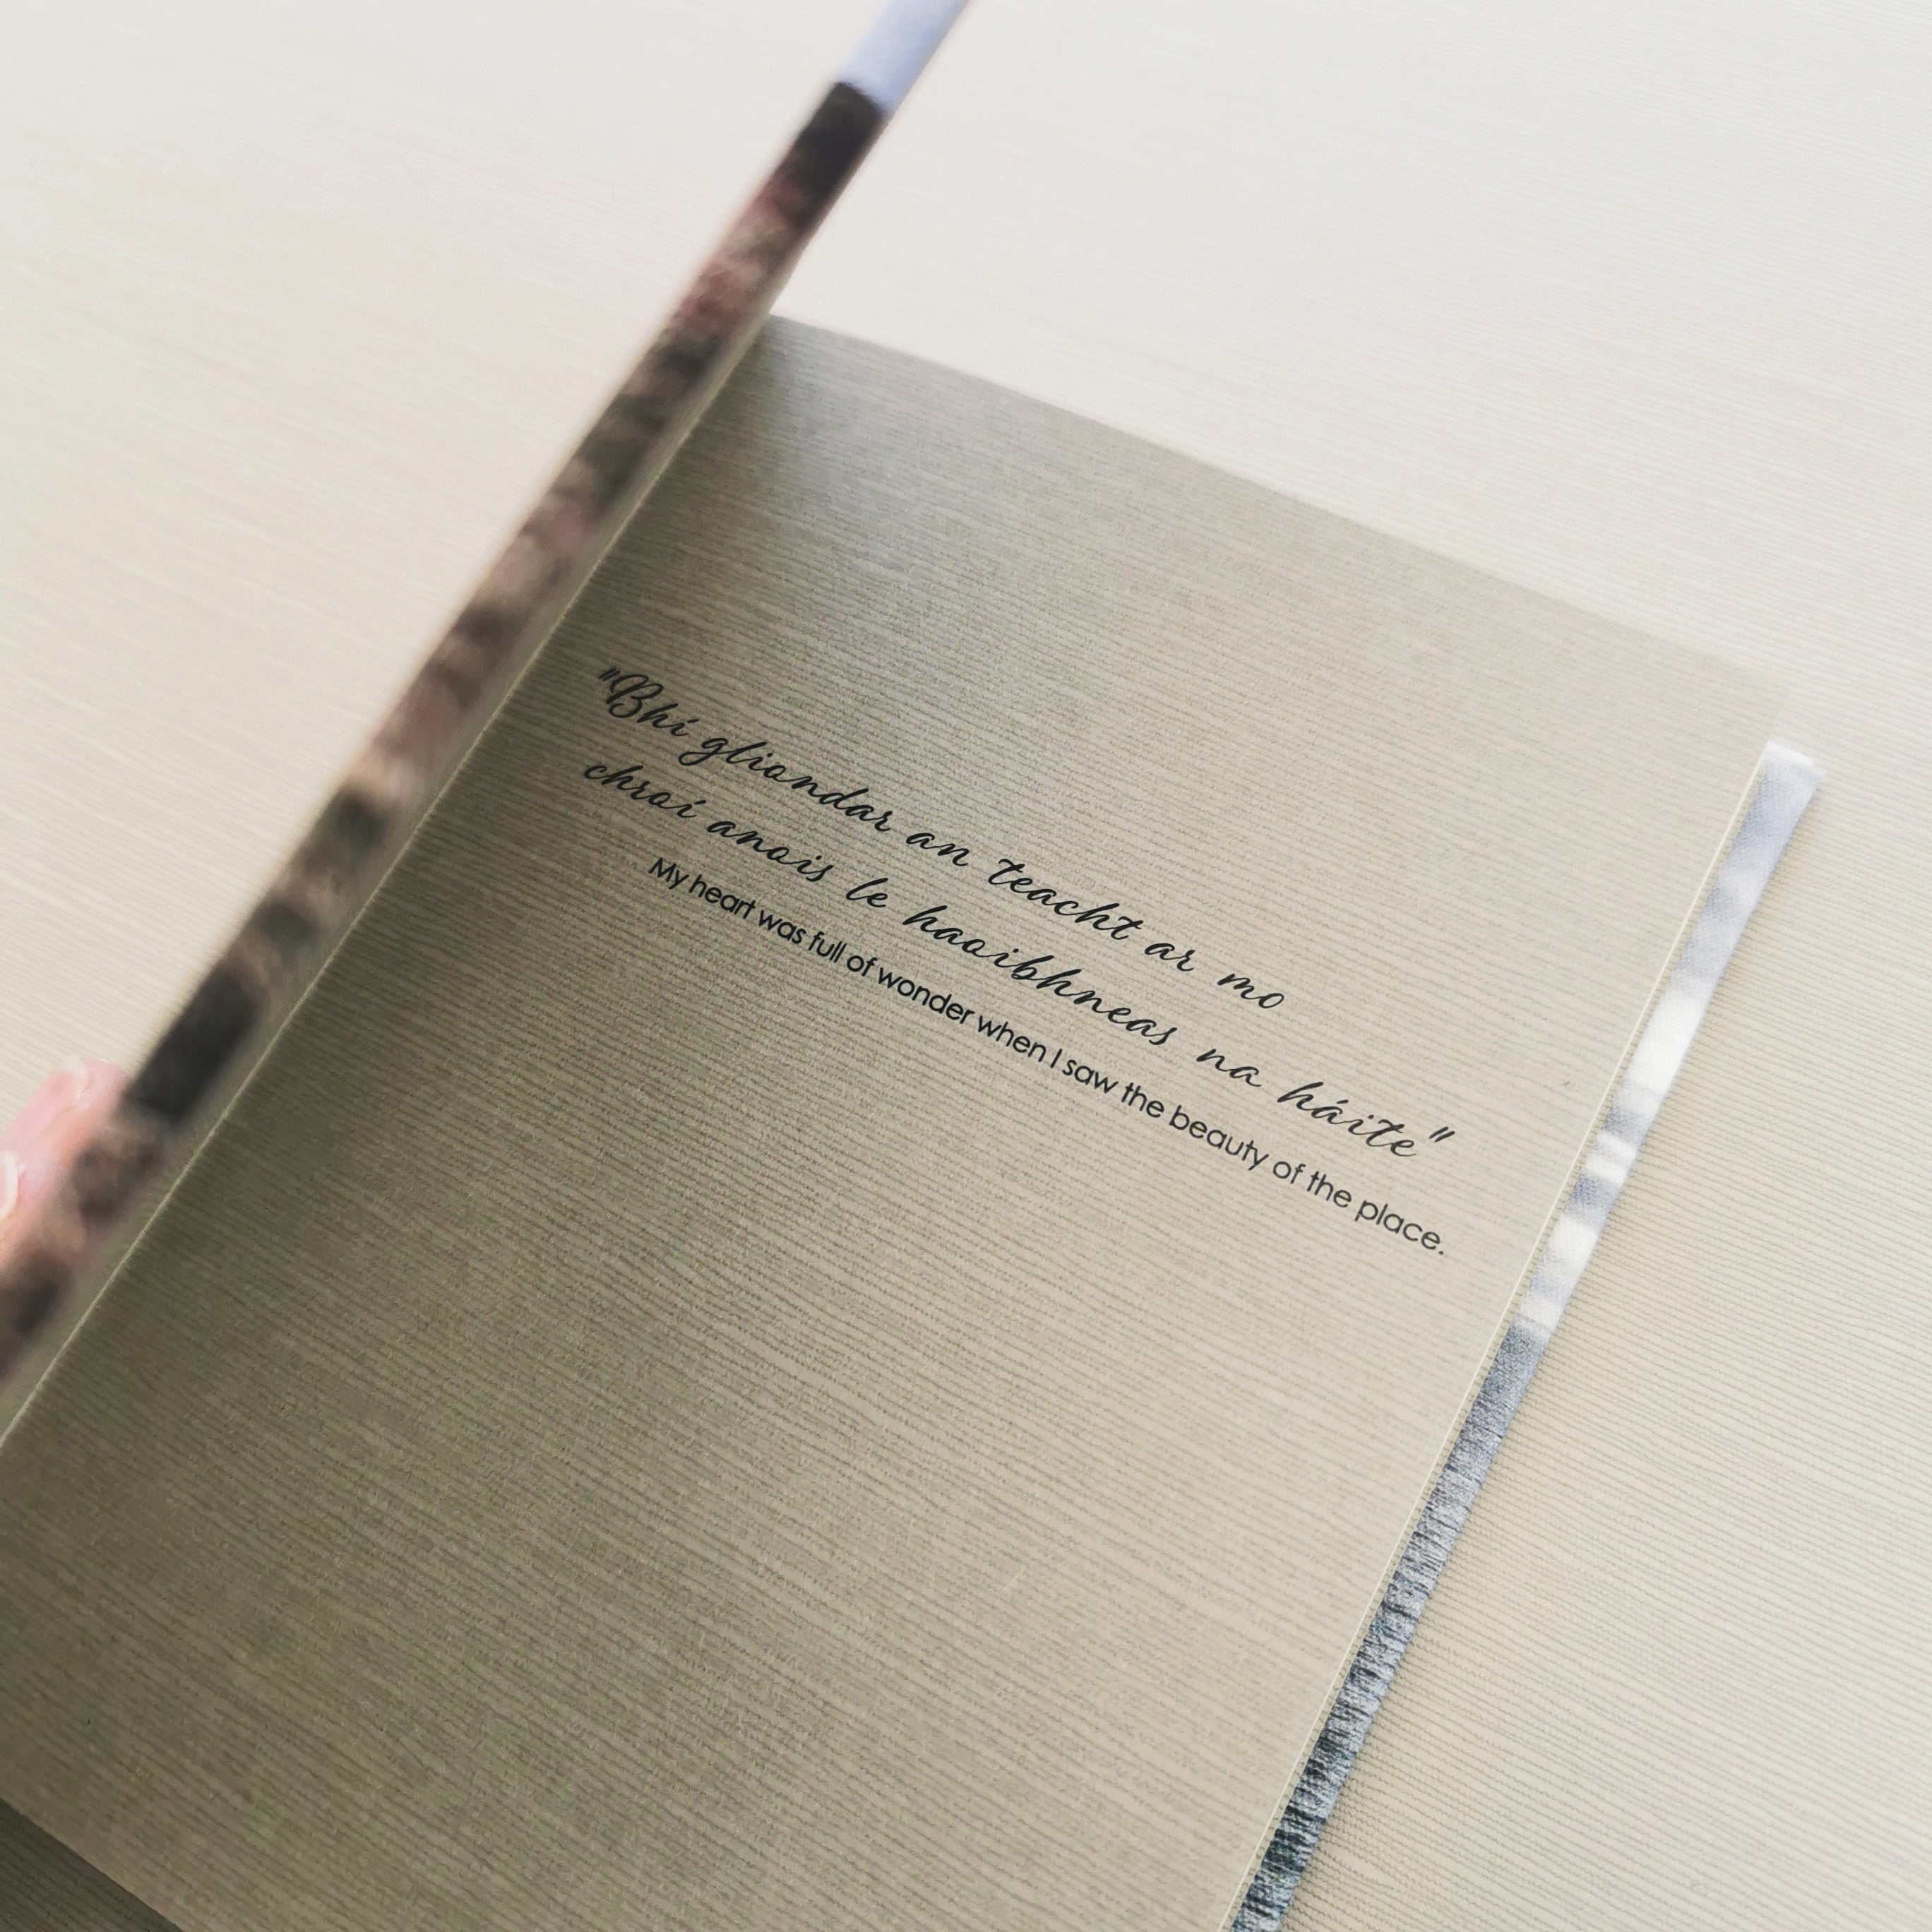 "Bhí gliondar an teacht ar mo
chroí anois le haoibhneas na háite"
My heart was full of wonder when I saw the beauty of the place.